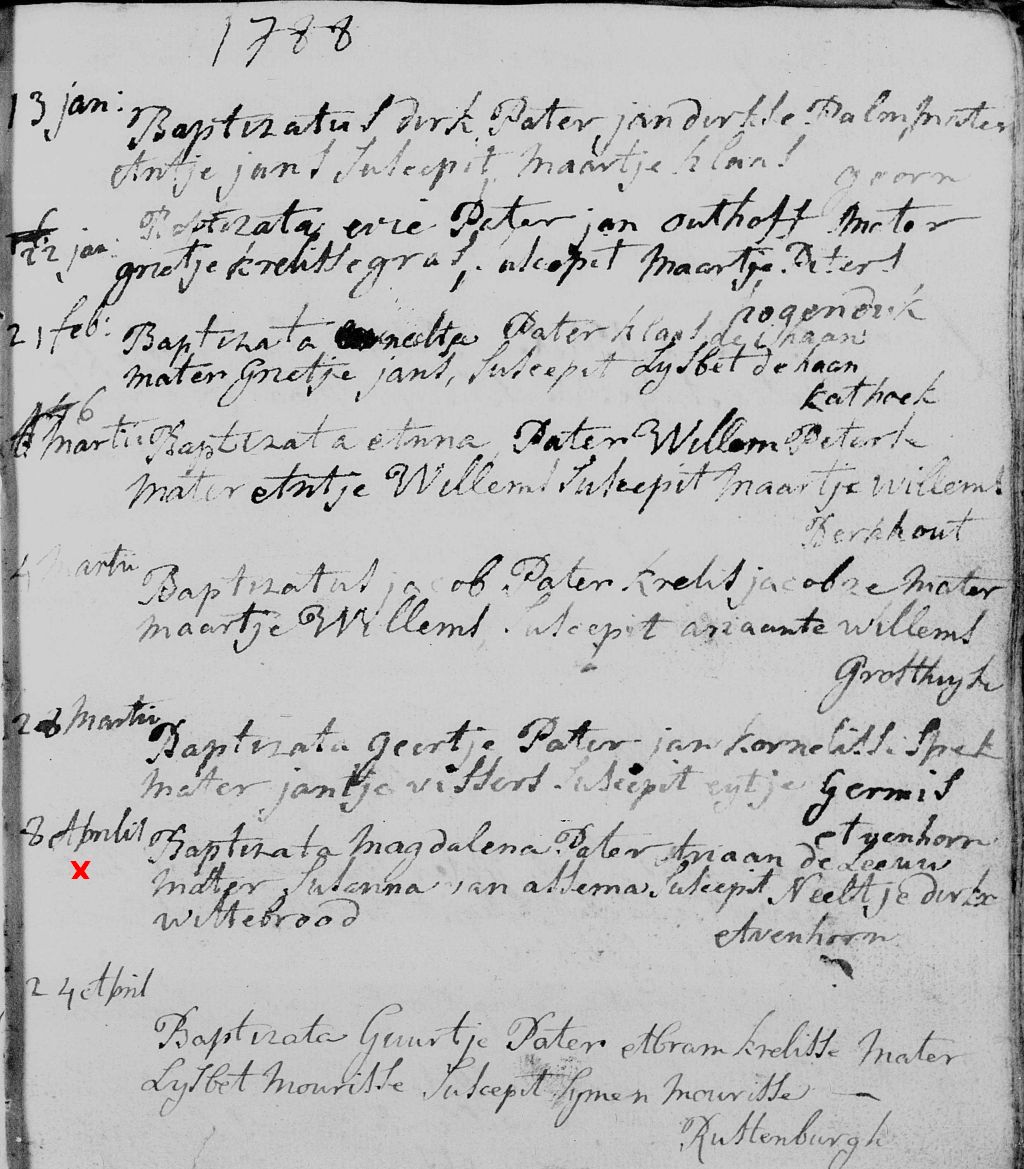 1788
13 jan: Baptizatus dirk Pater jan dirkse Palm, mater
Antje jans Suscepit Maartje klaas
goorn
22 jan: Baptizata evie Pater jan outhoff Mater
grietje krelisse gras, Suscepit Maartje Piters
hogendijk
21 feb: Baptizata neeltje Pater klaas de haan
mater Grietje jans, Suscepit Lysbet de haan
kathoek
6 Martii Baptizata Anna, Pater Willem Peters
Mater Antje Willems Suscepit Maartje willems
Berkhout
4 Martii Baptizatus jacob Pater krelis jacobze Mater
Maartje Willems, Suscepit ariaante willems
Grosthuyse
28 Martii Baptizata geertje Pater jan kornelisse Spek
Mater jantje vissers Suscepit eytje Germis
Avenhorn
8 Aprilis Baptizata Magdalena Pater Ariaan de Leeuw
X
Mater Susanna van assema Suscepit Neeltje dirkx
wittebrood
Avenhorn
24 April
Baptizata Guurtje Pater Abram krelisse Mater
Lysbet Mourisse Suscepit Symen Mourisse —
Ruttenburgh